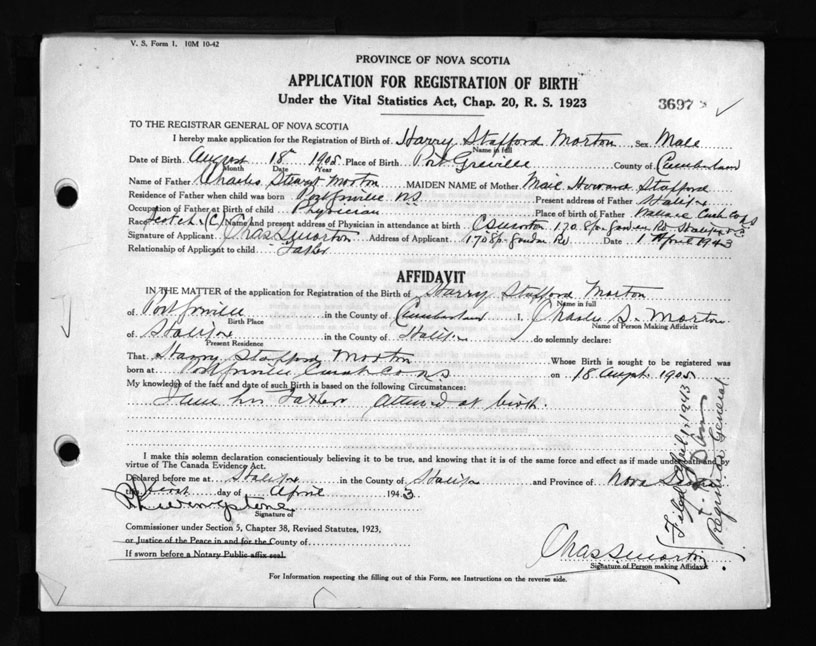 V. S. Form 1. 10M 10-42
PROVINCE OF NOVA SCOTIA
APPLICATION FOR REGISTRATION OF BIRTH
Under the Vital Statistics Act, Chap. 20, R. S. 1923
3697
TO THE REGISTRAR GENERAL OF NOVA SCOTIA
I hereby make application for the Registration of Birth of Harry Stafford Morton Sex Male
Name in full
Date of Birth August 18 1905 Place of Birth Port Greville County of Cumberland
Month Day Year
Name of Father Charles Stewart Morton MAIDEN NAME of Mother Howard Stafford
Residence of Father when child was born N.S. Present address of Father Halifax
Occupation of Father at Birth of child Physician Place of birth of Father Wallace
Race Scotch (C) Name and present address of Physician in attendance at birth C S Morton 170
Signature of Applicant Chas S Morton Address of Applicant 170 Date 1 April 1943
Relationship of Applicant to child Father
AFFIDAVIT
IN THE MATTER of the application for Registration of the Birth of Harry Stafford Morton
Name in full
of in the County of Cumberland I, Charles S. Morton
Birth Place Name of Person Making Affidavit
of Halifax in the County of Halifax do solemnly declare:
Present Residence
That Harry Stafford Morton Whose Birth is sought to be registered was
born at on 18 August 1905
My knowledge of the fact and date of such Birth is based on the following Circumstances:
I am his Father at birth.
I make this solemn declaration conscientiously believing it to be true, and knowing that it is of the same force and effect as if made under oath and by
virtue of The Canada Evidence Act.
Declared before me at Halifax in the County of Halifax and Province of Nova Scotia
this first day of April 1943
Signature of
Commissioner under Section 5, Chapter 38, Revised Statutes, 1923,
or Justice of the Peace in and for the County of
If sworn before a Notary Public affix seal.
Chas S Morton
Signature of Person making Affidavit
For Information respecting the filling out of this Form, see Instructions on the reverse side.
Filed April 1, 1943
Registrar General